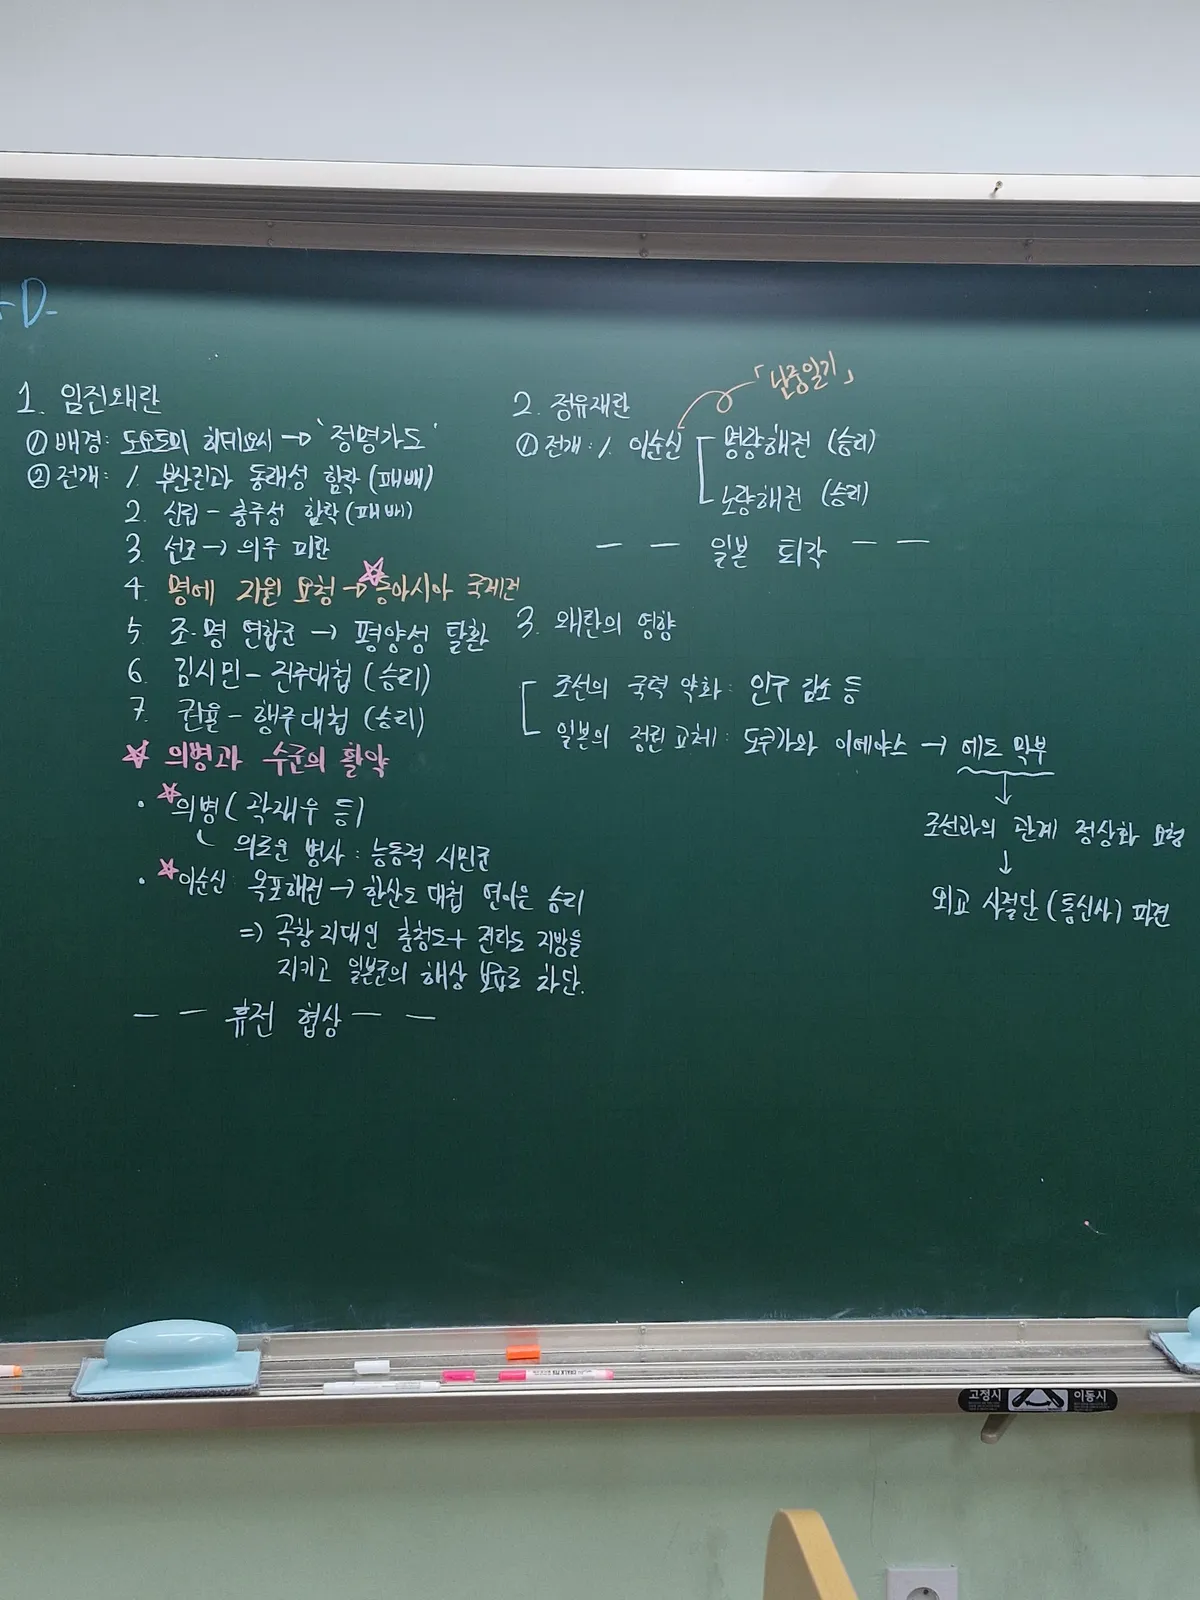 D-
1. 임진왜란
① 배경: 도요토미 히데요시 → '정명가도'
② 전개: 1. 부산진과 동래성 함락 (패배)
2. 신립 - 충주성 함락 (패배)
3. 선조 → 의주 피란
4. 명에 지원 요청 → ☆동아시아 국제전
5. 조·명 연합군 → 평양성 탈환
6. 김시민 - 진주대첩 (승리)
7. 권율 - 행주대첩 (승리)
☆ 의병과 수군의 활약
· ☆의병 (곽재우 등)
의로운 병사 : 능동적 시민군
· ☆이순신: 목포해전 → 한산도 대첩 연이은 승리
=> 곡창지대인 충청도 + 전라도 지방을
지키고 일본군의 해상 보급로 차단.
- - 휴전 협상 - -
2. 정유재란
「난중일기」
① 전개: 1. 이순신 명량해전 (승리)
노량해전 (승리)
- - 일본 퇴각 - -
3. 왜란의 영향
조선의 국력 약화: 인구 감소 등
일본의 정권 교체: 도쿠가와 이에야스 → 에도 막부
↓
조선과의 관계 정상화 요청
↓
외교 사절단 (통신사) 파견
고정시 이동시